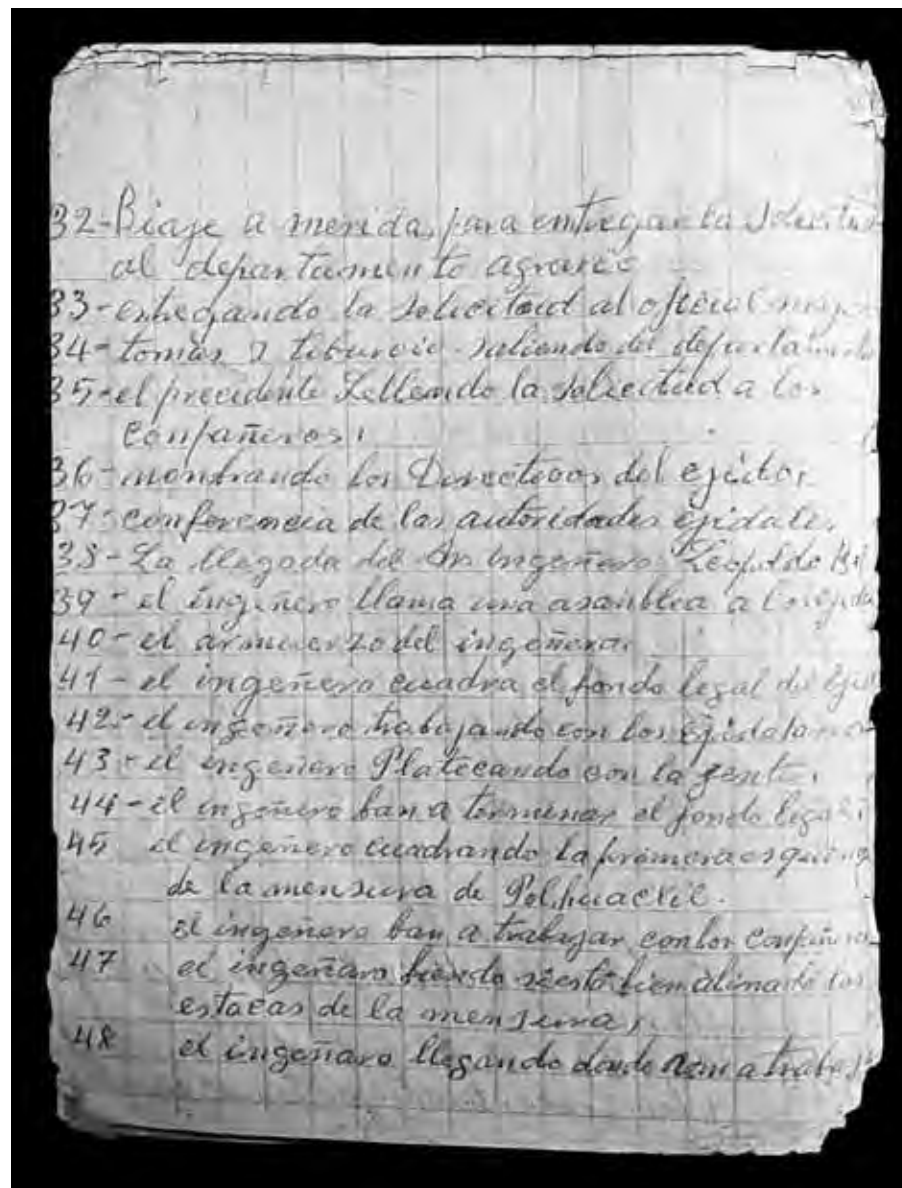 32-Biaje a merida, para entregar la Solicitud
al departamento agrario
33-entregando la solicitud al oficial mayor
34-tomas y tiburcio saliendo del departamento
35-el precidente Lellendo la solicitud a los
conpañeros.
36-monbrando los Directivos del ejido.
37-conferencia de las autoridades ejidales.
38-La llegada del ingeñero Leopoldo
39-el ingeñero llama una asanblea a
40-el armuerzo del ingeñero.
41-el ingeñero cuadra el fondo legal del
42-el ingeñero trabajando con los
43-el ingeñero Platecando con la gente.
44-el ingeñero ban a terminar el fondo legal
45 el ingeñero cuadrando la primera esquina
de la mensura de
46 el ingeñero ban a trabajar con los
47 el ingeñero biendo si esta bien alinado los
estacas de la mensura.
48 el ingeñaro llegando donde a